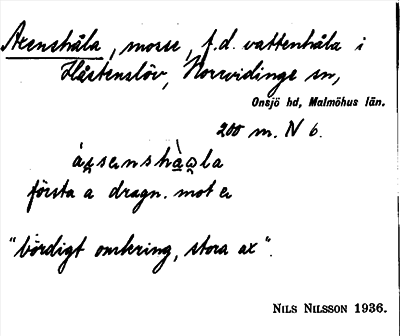 Axenshåla, mosse, f.d. vattenhåla i
Hästenslöv, Norrvidinge sn,
Onsjö hd, Malmöhus län.
200 m. N 6.
första a dragn. mot e
"bördigt omkring, stora ax".
NILS NILSSON 1936.